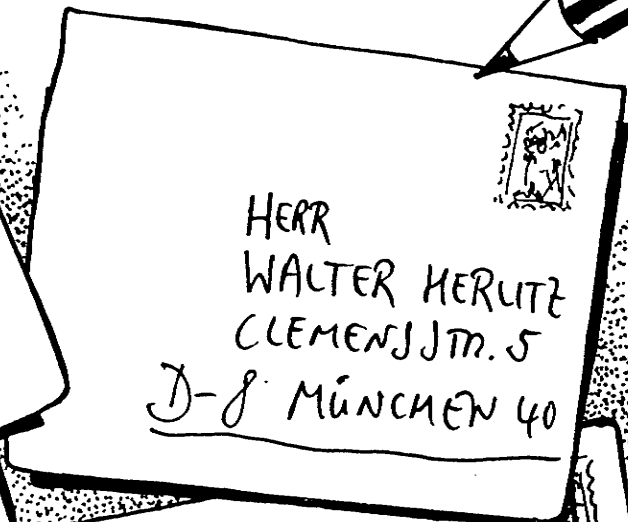 HERR
WALTER HERLITZ
CLEMENSSTR. 5
D-8 MÜNCHEN 40